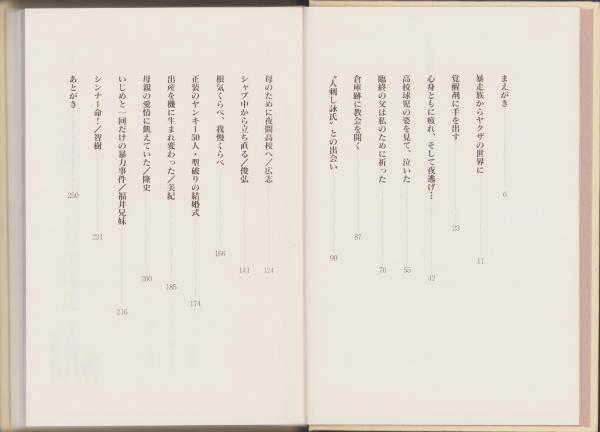 まえがき 6
暴走族からヤクザの世界に 11
覚醒剤に手を出す 23
心身ともに疲れ、そして夜逃げ… 42
高校球児の姿を見て、泣いた 55
臨終の父は私のために祈った 70
倉庫跡に教会を開く 87
〝人刺し詠氏〟との出会い 99
母のために夜間高校へ／広志 124
シャブ中から立ち直る／俊弘 141
根気くらべ、我慢くらべ 166
正装のヤンキー50人・型破りの結婚式 174
出産を機に生まれ変わった／美紀 185
母親の愛情に飢えていた／隆史 200
いじめと一回だけの暴力事件／福井兄妹 216
シンナー命！／智樹 231
あとがき 250